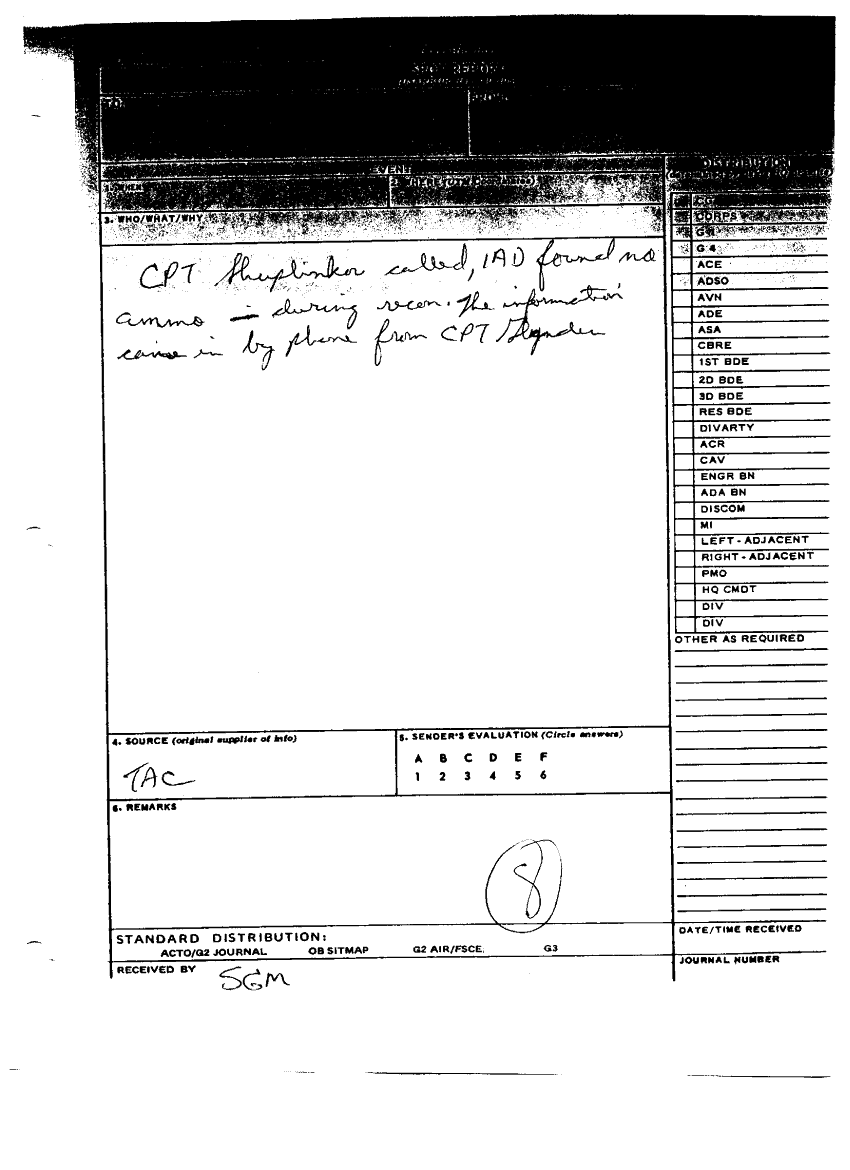 SPOT REPORT
TO:
FROM:
EVENT
1. WHEN
3. WHO/WHAT/WHY
CPT called, 1AD found no
ammo in during recon. The information
came in by phone from CPT
4. SOURCE (original supplier of info)
TAC
5. SENDER'S EVALUATION (Circle answers)
A B C D E F
1 2 3 4 5 6
6. REMARKS
8
STANDARD DISTRIBUTION:
ACTO/G2 JOURNAL OB SITMAP G2 AIR/FSCE, G3
RECEIVED BY SGM
DISTRIBUTION
CG
CORPS
G 4
ACE
ADSO
AVN
ADE
ASA
CBRE
1ST BDE
2D BDE
3D BDE
RES BDE
DIVARTY
ACR
CAV
ENGR BN
ADA BN
DISCOM
MI
LEFT - ADJACENT
RIGHT - ADJACENT
PMO
HQ CMDT
DIV
DIV
OTHER AS REQUIRED
DATE/TIME RECEIVED
JOURNAL NUMBER